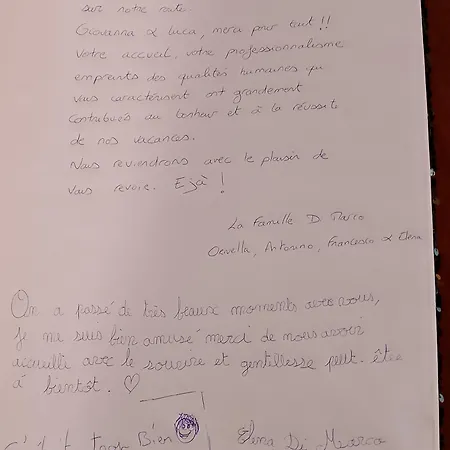 sur notre route.
Giovanna & Luca, merci pour tout !!
Votre accueil, votre professionnalisme
emprunts des qualités humaines qui
vous caractérisent ont grandement
contribués au bonheur et à la réussite
de nos vacances.
Nous reviendrons avec le plaisir de
vous revoir. Ejà !
La Famille Di Marco
Ornella, Antonino, Francesco & Elena
On a passé de très beaux moments avec vous,
Je me suis bien amusé merci de nous avoir
accueilli avec le sourire et gentillesse peut-être
à bientôt. ♡
c'était trop Bien
Elena Di Marco